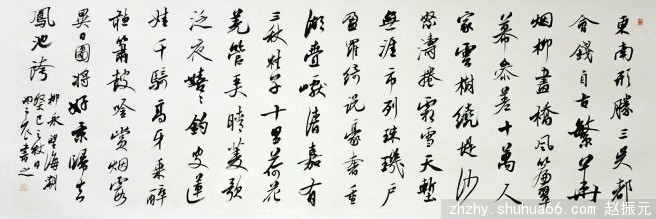 東南形勝三吳都
會錢自古繁華
烟柳畫橋風簾翠
幕參差十萬人
家雲樹繞堤沙
怒濤捲霜雪天塹
無涯市列珠璣戶
盈羅綺競豪奢重
湖疊巘清嘉有
三秋桂子十里荷花
羌管弄晴菱歌
泛夜嬉嬉釣叟蓮
娃千騎高牙乘醉
聽簫鼓吟賞烟霞
異日圖將好景歸去
鳳池誇
柳永望海潮
癸巳之秋日
書之
zhzhy.shuhua66.com 赵振元